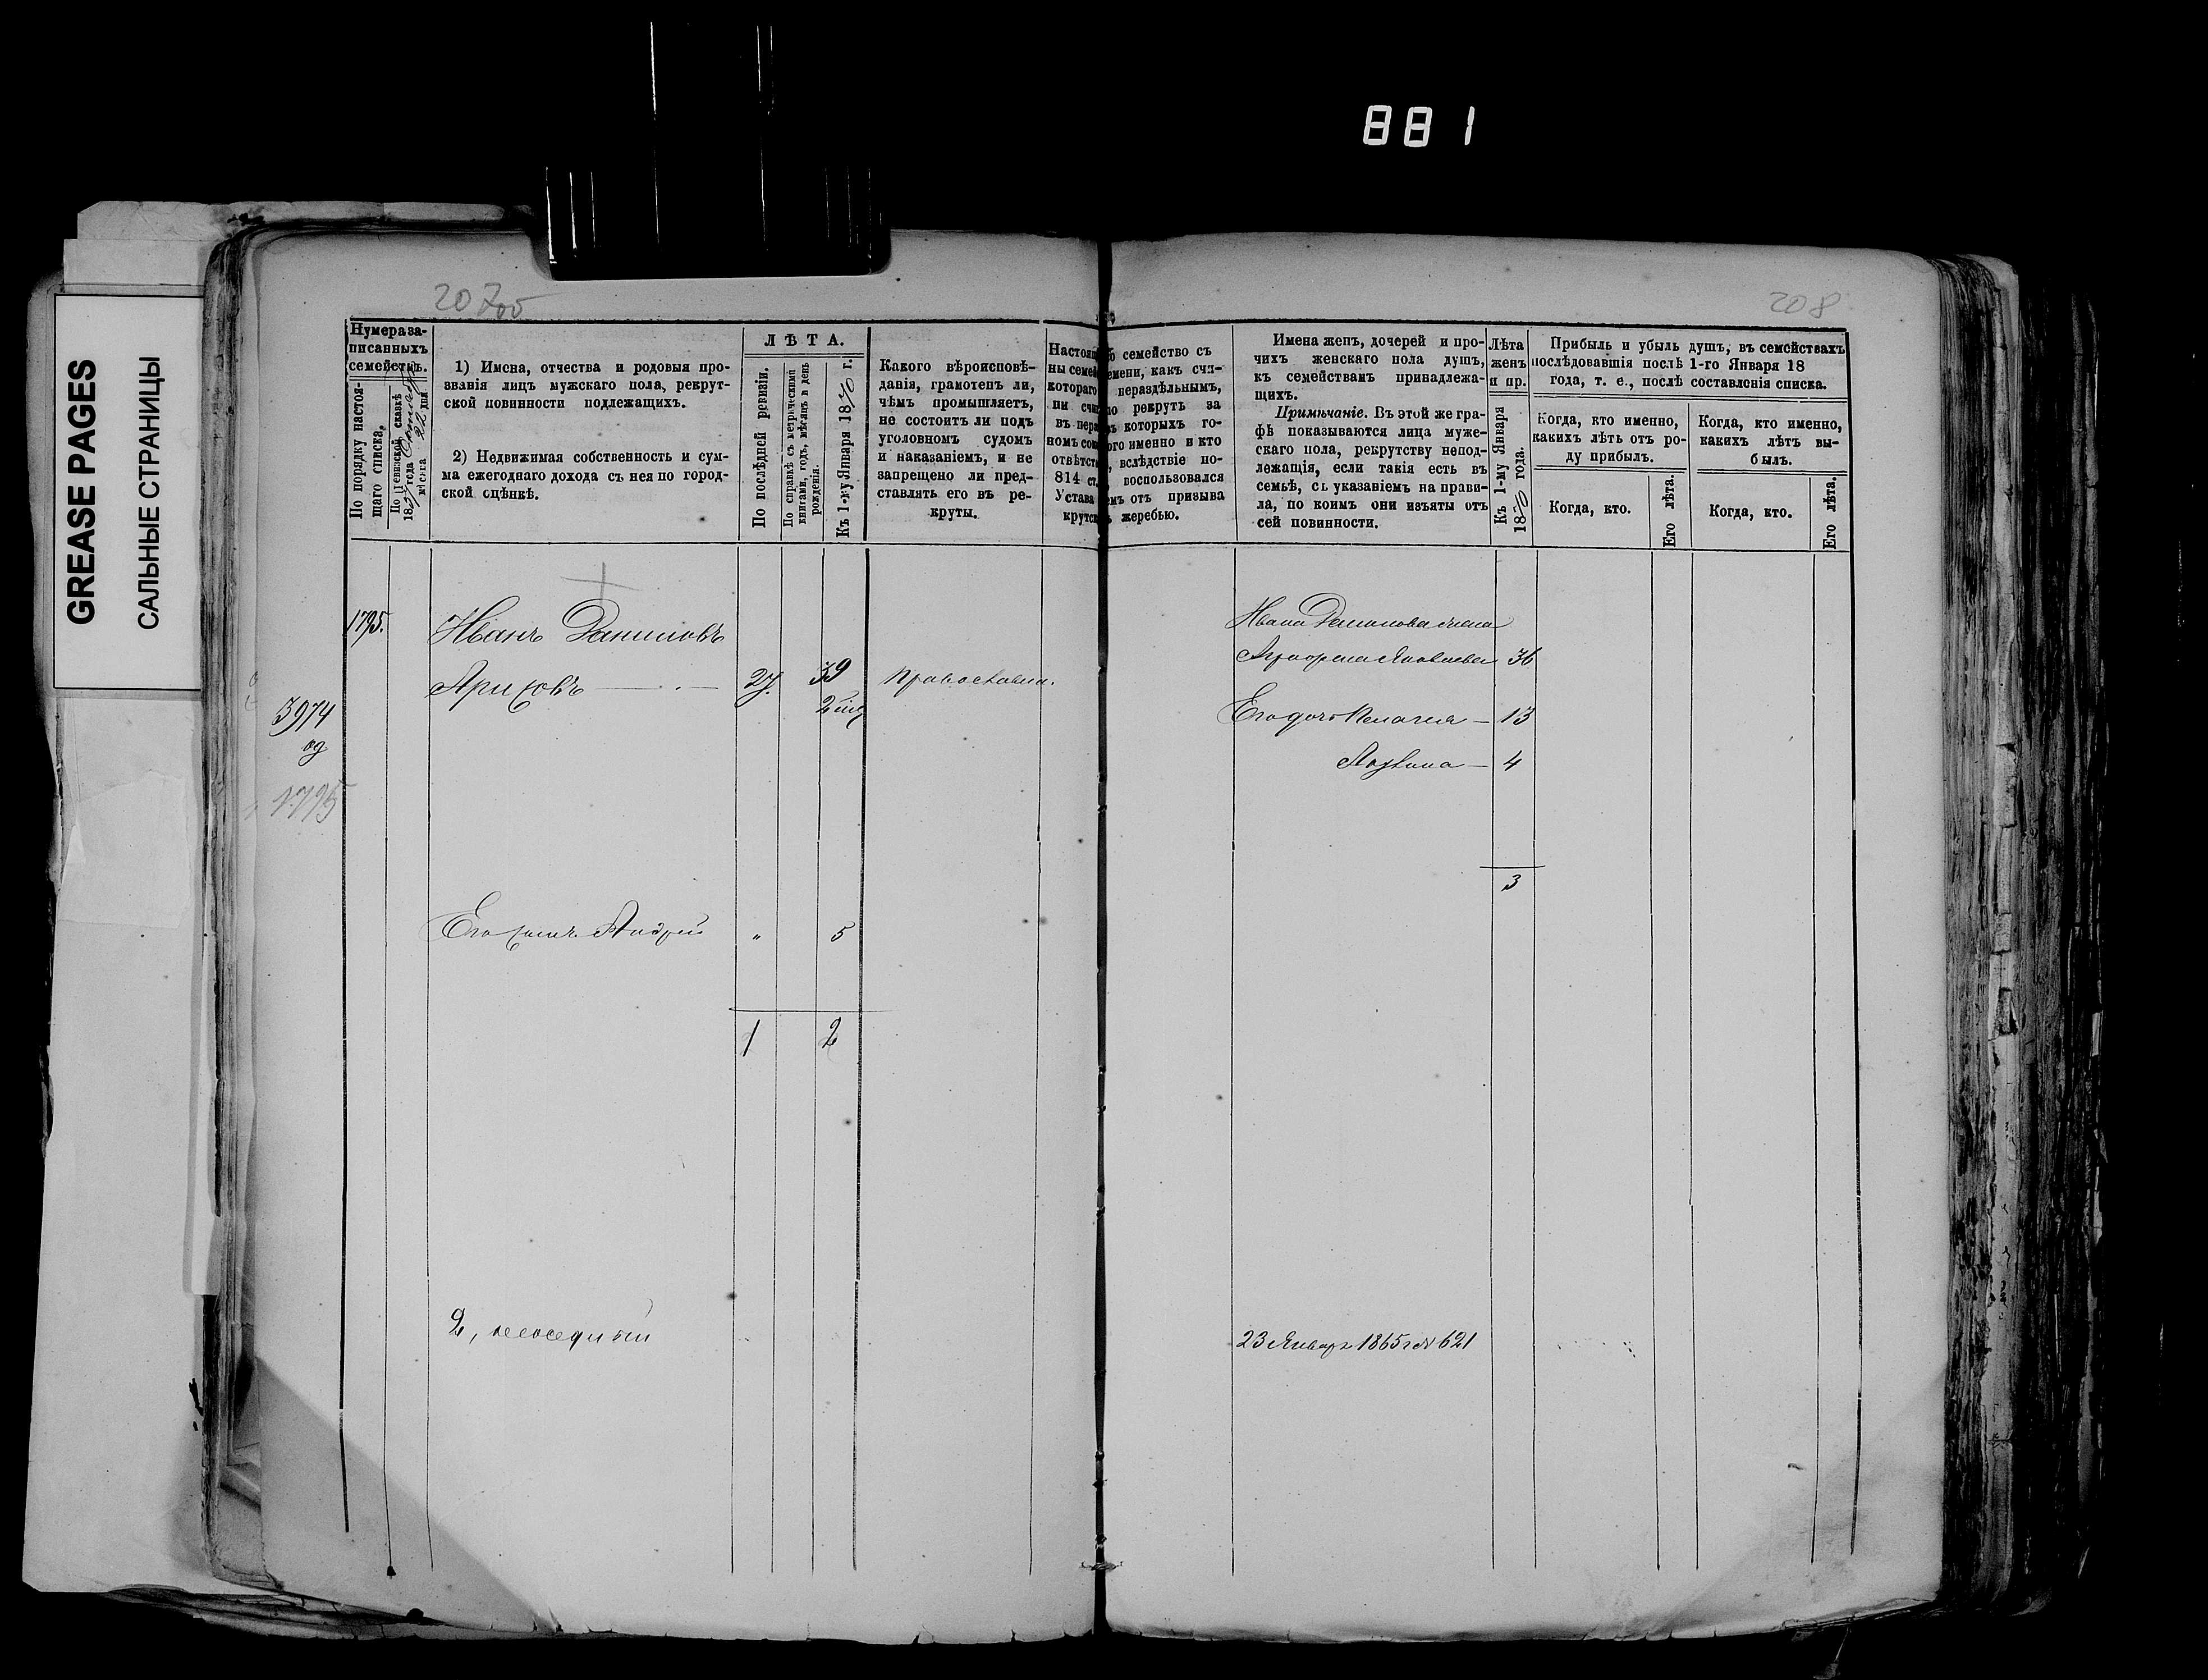 881
GREASE PAGES
САЛЬНЫЕ СТРАНИЦЫ
207об
208
Нумера за-
писанныхъ
семействъ.
По порядку настоя-
щаго списка.
По ревизской сказкѣ
18 года
мѣсяца 22 дня
1) Имена, отчества и родовыя про-
званія лицъ мужскаго пола, рекрут-
ской повинности подлежащихъ.
2) Недвижимая собственность и сум-
ма ежегоднаго дохода съ нея по город-
ской оцѣнкѣ.
ЛѢТА.
По послѣдней ревизіи.
По справкѣ съ метрическими
книгами, годъ, мѣсяцъ и день
рожденія.
Къ 1-му Января 1870 г.
Какого вѣроисповѣ-
данія, грамотенъ ли,
чѣмъ промышляетъ,
не состоитъ ли подъ
уголовномъ судомъ
и наказаніемъ, и не
запрещено ли пред-
ставлять его въ ре-
круты.
Настоящ
ны семей
котораго
ни счит
въ нера
номъ сос
отвѣтст
814 ст.
Устава
крутск
семейство съ
емени, какъ счи-
нераздѣльнымъ,
но рекрутъ за
которыхъ го-
ого именно и кто
, вслѣдствіе по-
воспользовался
емъ отъ призыва
жеребью.
Имена женъ, дочерей и про-
чихъ женскаго пола душъ,
къ семействамъ принадлежа-
щихъ.
Примѣчаніе. Въ этой же гра-
фѣ показываются лица муже-
скаго пола, рекрутству непод-
лежащія, если такія есть въ
семьѣ, съ указаніемъ на прави-
ла, по коимъ они изъяты отъ
сей повинности.
Лѣта
женъ
и пр.
Къ 1-му Января
1870 года.
Прибыль и убыль душъ, въ семействахъ
послѣдовавшія послѣ 1-го Января 18
года, т. е., послѣ составленія списка.
Когда, кто именно,
какихъ лѣтъ отъ ро-
ду прибылъ.
Когда, кто именно,
какихъ лѣтъ вы-
былъ.
Когда, кто.
Его лѣта.
Когда, кто.
Его лѣта.
1795.
Иванъ Даниловъ
Ариховъ 27. 39 Православн.
3974
1795
Его сынъ Андрей " 5
1 2
Ивана Данилова жена
Агрофена Яковлева 36
Его дочь Пелагея — 13
4
3
23 Января 1865 г № 621